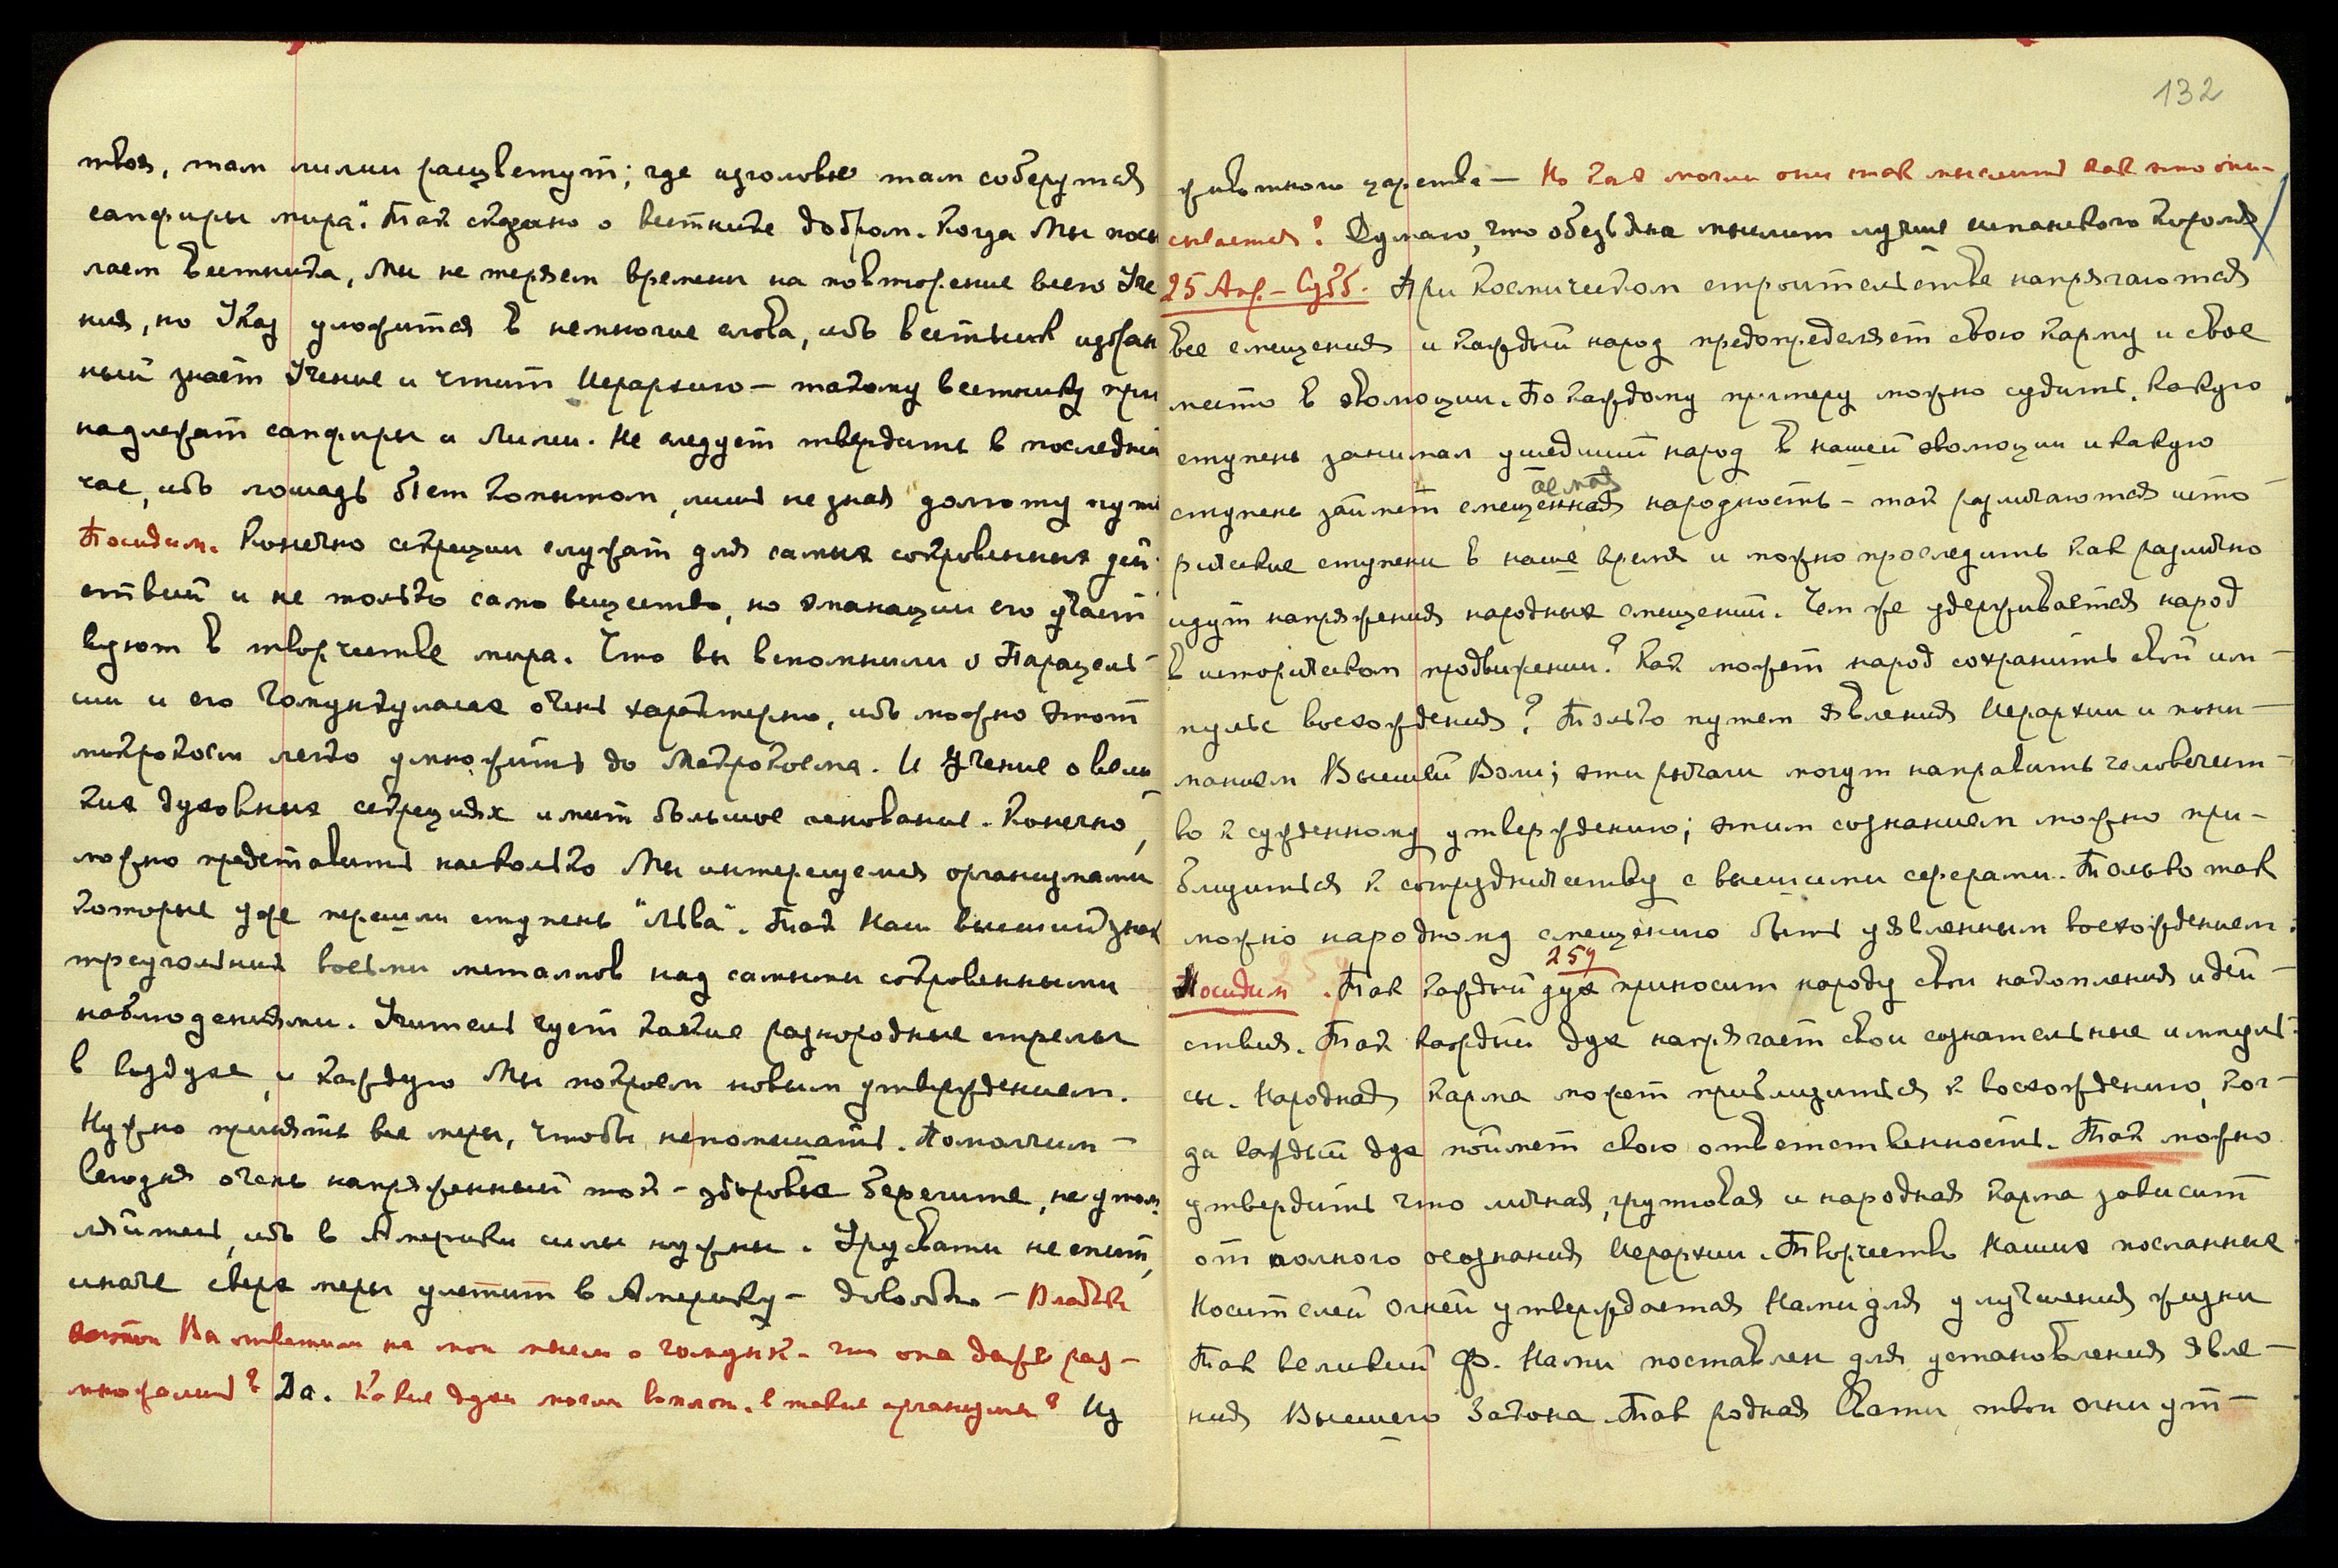 твоя, там лилии расцветут; где изголовье там соберутся
сапфиры мира". Так сказано о вестнике добром. Когда Мы посы
лаем вестника, Мы не теряем времени на повторение всего Уче
ния, но Указ уложится в немногие слова, ибо вестник избран
ный знает Учение и чтит Иерархию — такому вестнику при
надлежат сапфиры и Лилии. Не следует твердить в последний
час, ибо лошадь бьет копытом, лишь не зная долготу пути
Посидим. Конечно секреции служат для самых сокровенных дей-
ствий и не только само вещество, но эманации его участ
вуют в творчестве мира. Что вы вспомнили о Парацель-
сии и его Гомункуласах очень характерно, ибо можно этот
микрокосм легко умножить до Макрокосма. И Учение о вели
ких духовных секрециях имеет большое основание. Конечно,
можно представить насколько Мы интересуемся организмами
которые уже перешли ступень "Льва". Так Наш высший знак
треугольник восьми металлов над самыми сокровенными
наблюдениями. Учитель чует какие разнородные стрелы
в воздухе, и каждую Мы покроем новым утверждением.
Нужно принять все меры, чтобы не помешать. Помолчим —
сегодня очень напряженный ток — здоровье берегите, не утом
ляйтесь, ибо в Америки силы нужны. Урусвати не спит,
иначе сверх меры улетит в Америку — довольно — Владыка
Вы ответили на мои мысли о гомунк. — что она даже раз-
множались? Да. Какие духи могли воплот. в такие организмы? Из
132
животного царства — Но как могли они так мыслить как это опи-
сывается? Думаю, что обезьяна мыслит лучше испанского короля
25 Апр. – Субб. При космическом строительстве напрягаются
все смещения и каждый народ предопределяет свою карму и свое
место в эволюции. По каждому примеру можно судить, какую
ступень занимал ушедший народ в нашей эволюции и какую
ступень займет смещенная народность — так различаются исто-
рические ступени в наше время и можно проследить как различно
идут напряжения народных смещений. Чем же удерживается народ
в историческом продвижении? Как может народ сохранить свой им-
пульс восхождения? Только путем явления Иерархии и пони-
манием Высшей Воли; эти рычаги могут направить человечест-
во к сужденному утверждению; этим сознанием можно при-
близиться к сотрудничеству с высшими сферами. Только так
можно народному смещению быть уявленным восхождением.
259
Посидим. Так каждый дух приносит народу свои накопления и дей-
ствия. Так каждый дух напрягает свои сознательные импуль-
сы. Народная карма может приблизиться к восхождению, ког-
да каждый дух поймет свою ответственность. Так можно
утвердить что личная, групповая и народная карма зависит
от полного осознания Иерархии. Творчество Наших посланных
Носителей Огней утверждается Нами для улучшения жизни
Так великий Ф. Нами поставлен для установления явле-
ния Высшего Закона. Так родная Свати твои огни ут-